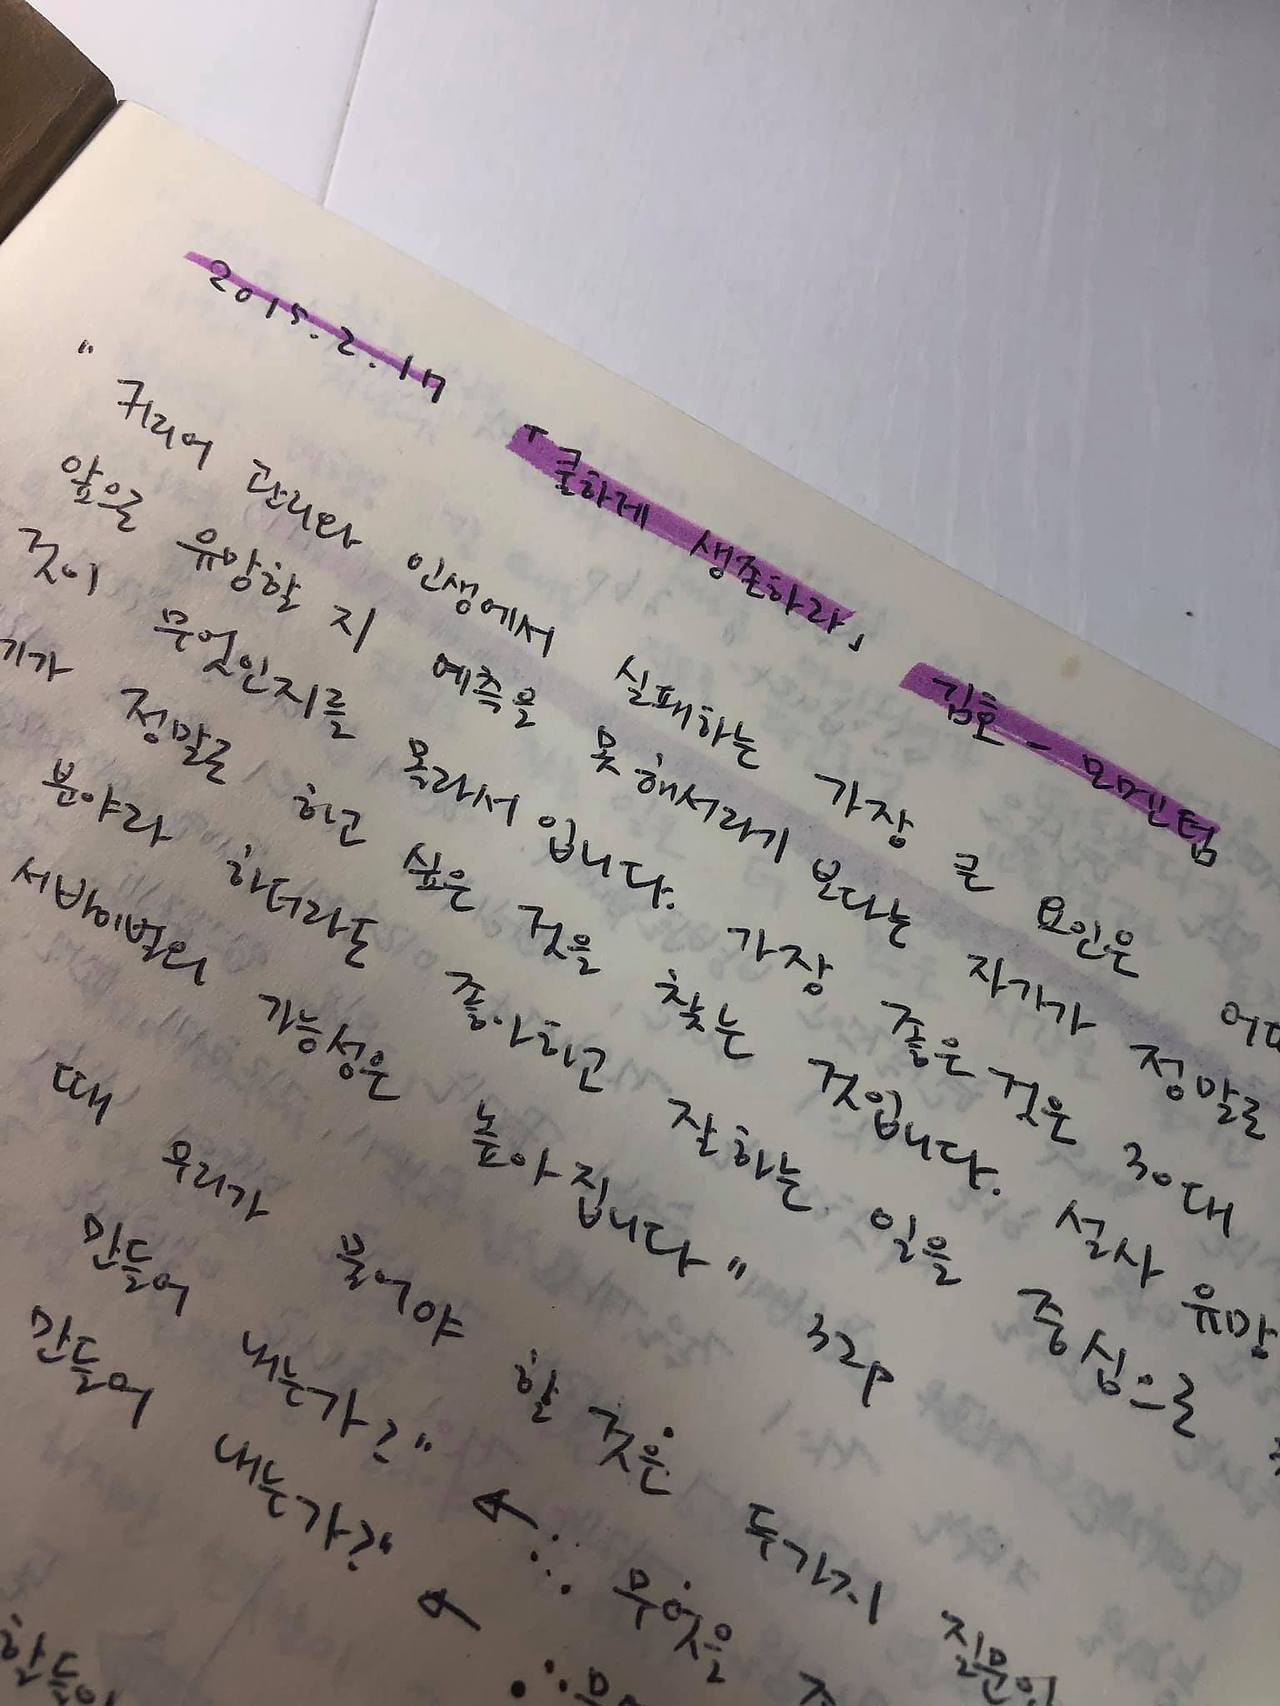 2015.2.17 「쿨하게 생존하라」 김호 - 모멘텀
" 커리어 관리와 인생에서 실패하는 가장 큰 요인은
앞으로 유망할 지 예측을 못해서라기 보다는 자기가 정말로
것이 무엇인지를 몰라서 입니다. 가장 좋은 것은 30대
기가 정말로 하고 싶은 것을 찾는 것입니다. 설사 유망
분야라 하더라도 좋아하고 잘하는 일을 중심으로
서바이벌의 가능성은 높아집니다" 32p
때 우리가 물어야 할 것은 두가지 질문
만들어 내는가?" ← ∴ 무엇을
만들어 내는가?" ← ∴